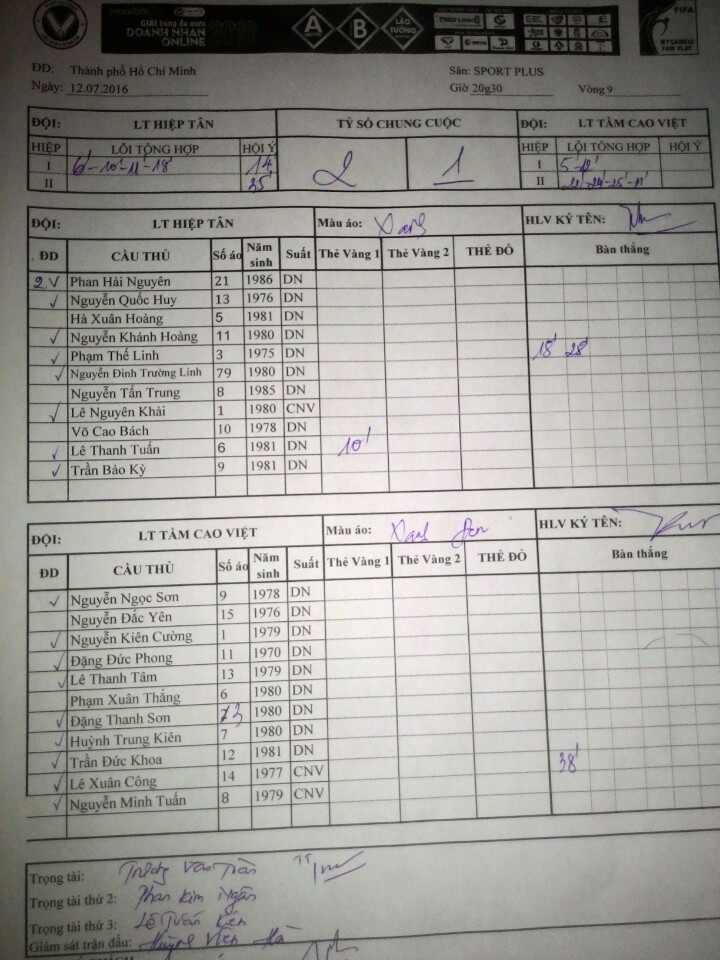 GIẢI bóng đá mini
DOANH NHÂN
ONLINE 2016
A B LÀO TƯỜNG
FIFA
MY GAME IS
FAIR PLAY
ĐĐ: Thành phố Hồ Chí Minh Sân: SPORT PLUS
Ngày: 12.07.2016 Giờ 20g30 Vòng 9
ĐỘI: LT HIỆP TÂN TỶ SỐ CHUNG CUỘC ĐỘI: LT TẦM CAO VIỆT
HIỆP LỖI TỔNG HỢP HỘI Ý 2 1 HIỆP LỖI TỔNG HỢP HỘI Ý
I 6'-10'-11'-18' 14' I 5'-12'
II 35' II 21'-24'-25'-11'
ĐỘI: LT HIỆP TÂN Màu áo: Xanh HLV KÝ TÊN:
ĐD CẦU THỦ Số áo Năm sinh Suất Thẻ Vàng 1 Thẻ Vàng 2 THẺ ĐỎ Bàn thắng
2 V Phan Hải Nguyên 21 1986 DN
✓ Nguyễn Quốc Huy 13 1976 DN
Hà Xuân Hoàng 5 1981 DN
✓ Nguyễn Khánh Hoàng 11 1980 DN
✓ Phạm Thế Linh 3 1975 DN 18' 28'
✓ Nguyễn Đinh Trường Linh 79 1980 DN
Nguyễn Tấn Trung 8 1985 DN
✓ Lê Nguyên Khải 1 1980 CNV
Võ Cao Bách 10 1978 DN
✓ Lê Thanh Tuấn 6 1981 DN 10'
✓ Trần Bảo Kỳ 9 1981 DN
ĐỘI: LT TẦM CAO VIỆT Màu áo: Xanh đen HLV KÝ TÊN:
ĐD CẦU THỦ Số áo Năm sinh Suất Thẻ Vàng 1 Thẻ Vàng 2 THẺ ĐỎ Bàn thắng
✓ Nguyễn Ngọc Sơn 9 1978 DN
Nguyễn Đắc Yên 15 1976 DN
✓ Nguyễn Kiên Cường 1 1979 DN
✓ Đặng Đức Phong 11 1970 DN
✓ Lê Thanh Tâm 13 1979 DN
Phạm Xuân Thắng 6 1980 DN
✓ Đặng Thanh Sơn 73 1980 DN
✓ Huỳnh Trung Kiên 7 1980 DN
✓ Trần Đức Khoa 12 1981 DN 38'
✓ Lê Xuân Công 14 1977 CNV
✓ Nguyễn Minh Tuấn 8 1979 CNV
Trọng tài: Trương Văn Trần
Trọng tài thứ 2: Phan Kim Ngân
Trọng tài thứ 3: Lê Tuấn Kiên
Giám sát trận đấu: Huỳnh Viễn Hà